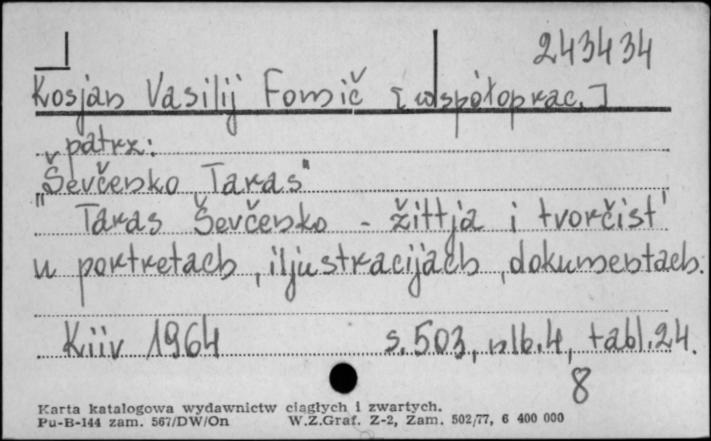 243434
Kosjan Vasilij Fomič [współoprac.]
patrz:
"Ševčenko Taras"
Taras Ševčenko - žittja i tvorčist'
u portretach, iljustracijach, dokumentach.
Kiiv 1964 s. 503, nlb. 4, tabl. 24.
8
Karta katalogowa wydawnictw ciągłych i zwartych.
Pu-B-144 zam. 567/DW/On W.Z.Graf. Z-2, Zam. 502/77, 6 400 000